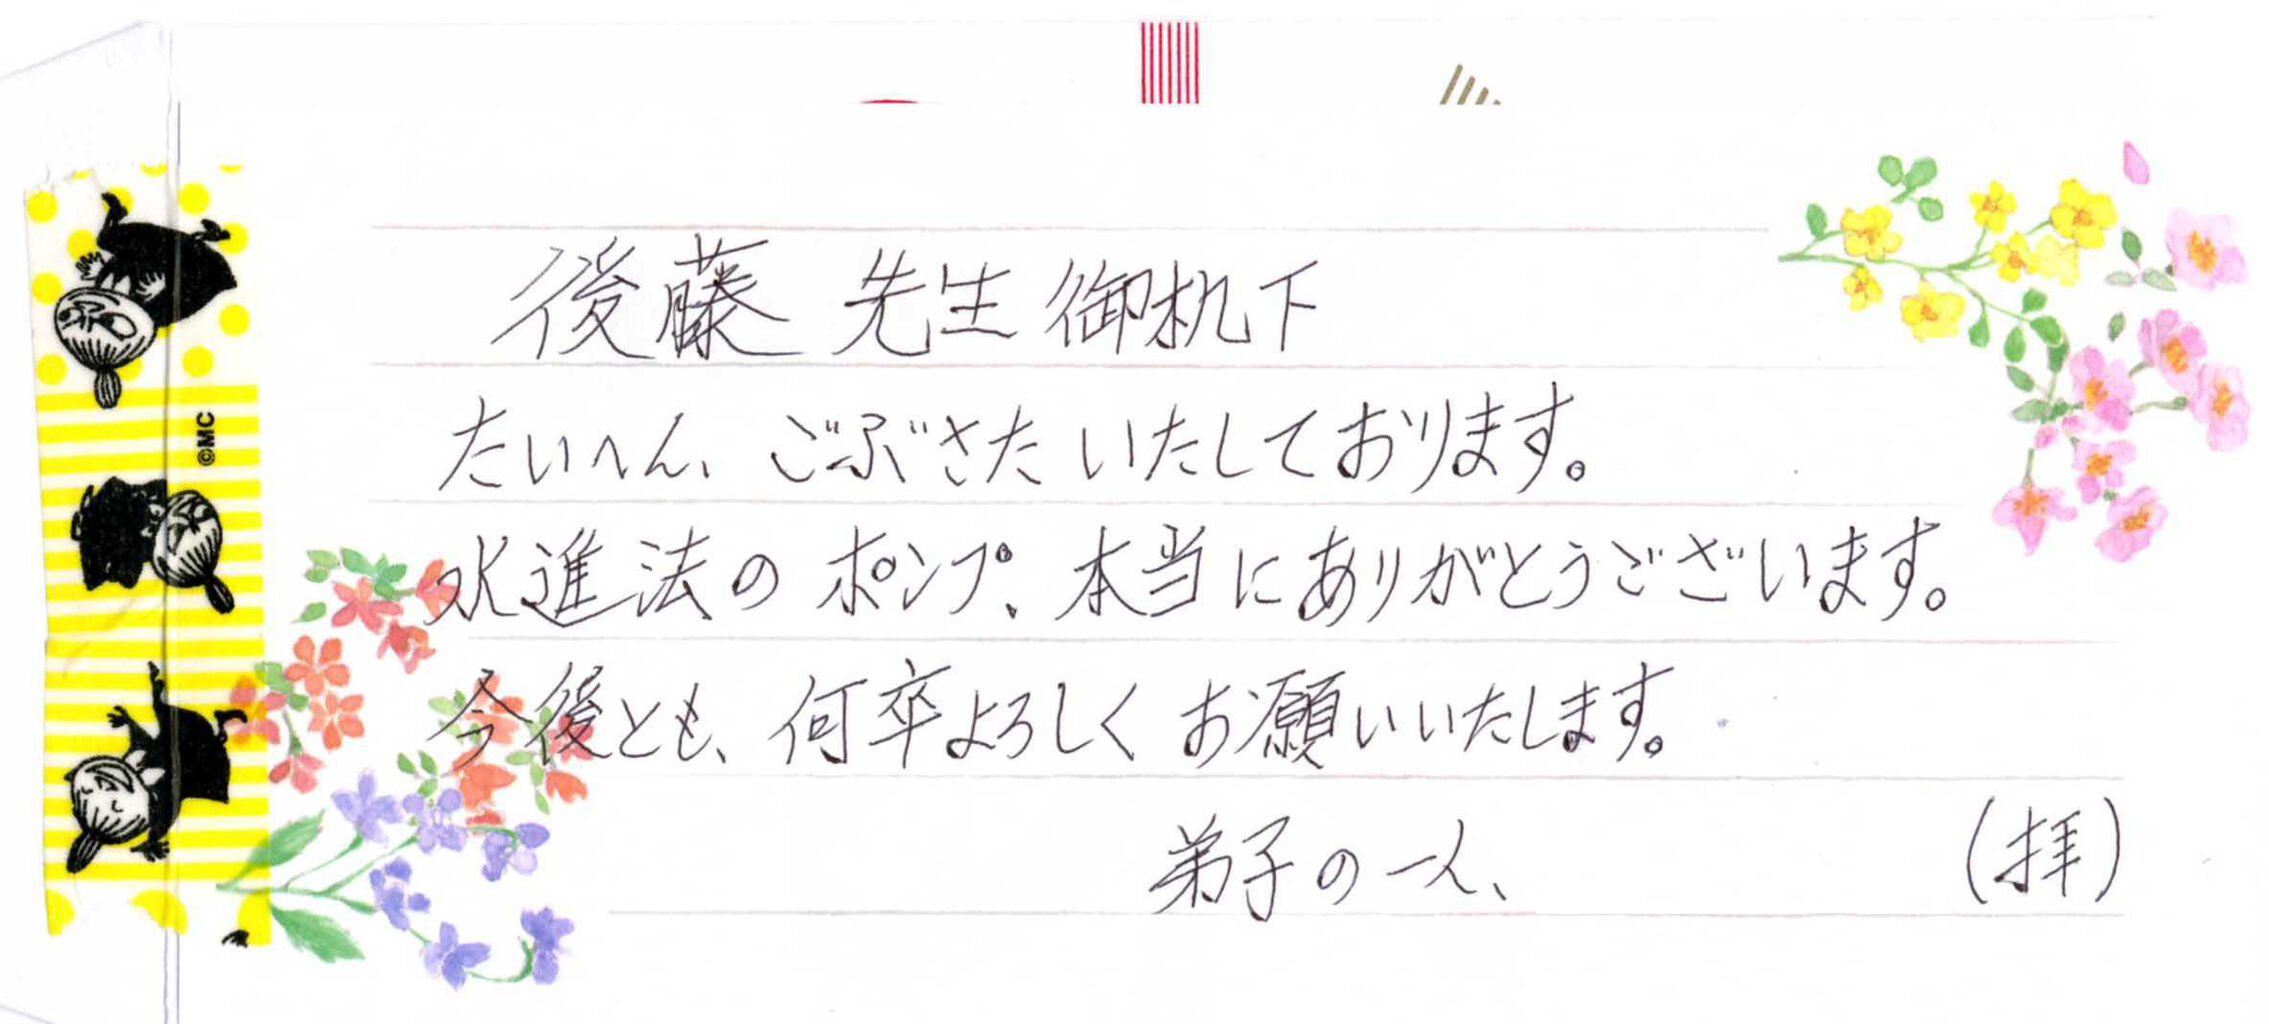 後藤 先生 御机下
たいへん、ごぶさたいたしております。
水進法のポンプ、本当にありがとうございます。
今後とも、何卒よろしくお願いいたします。
弟子の一人、 (拝)
©MC